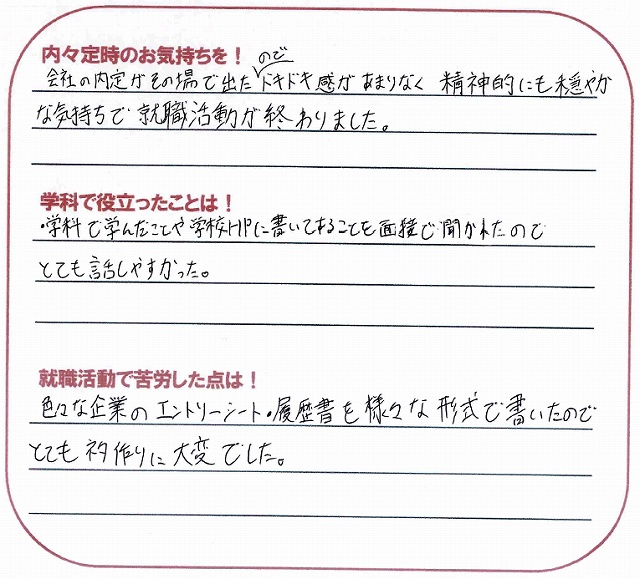 内々定時のお気持ちを！
会社の内定がその場で出たのでドキドキ感があまりなく 精神的にも穏やか
な気持ちで就職活動が終わりました。
学科で役立ったことは！
・学科で学んだことや学校HPに書いてあることを面接で聞かれたので
とても話しやすかった。
就職活動で苦労した点は！
色々な企業のエントリーシート・履歴書を様々な形式で書いたので
とてもネタ作りに大変でした。